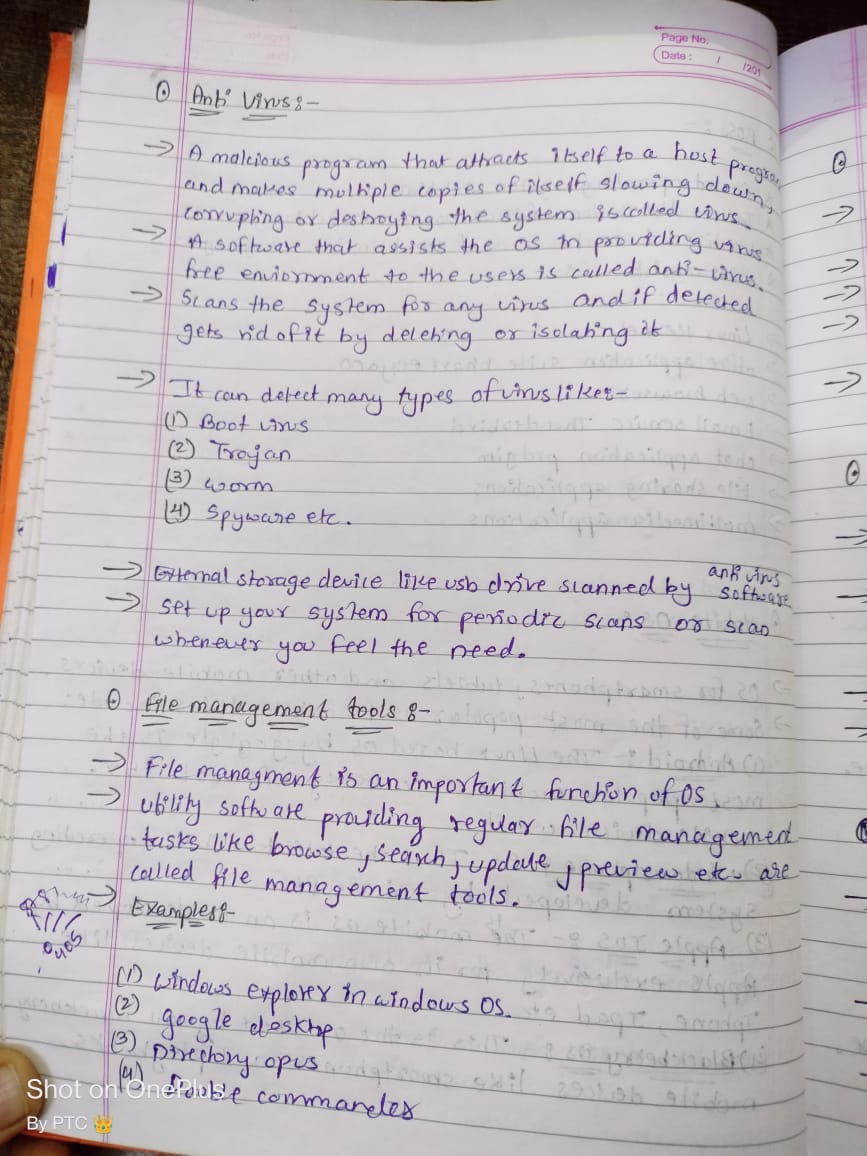 Page No.
Date: / /201
Anti Virus :-
→ A malcious program that attracts itself to a host program
and makes multiple copies of itself slowing down,
corrupting or destroying the system is called virus.
→ A software that assists the OS in providing virus
free enviornment to the users is called anti-virus.
→ Scans the system for any virus and if detected
gets rid of it by deleting or isolating it
→ It can detect many types of virus like:-
(1) Boot virus
(2) Trojan
(3) worm
(4) Spyware etc.
→ External storage device like usb drive scanned by anti virus software
→ Set up your system for periodic scans or scan
whenever you feel the need.
File management tools :-
→ File managment is an important function of OS
→ utility software providing regular file management
tasks like browse, search, update, preview etc. are
called file management tools.
→ Examples:-
(1) windows explorer in windows OS.
(2) google desktop
(3) Directory opus
(4) Double commander
Shot on OnePlus
By PTC 👑